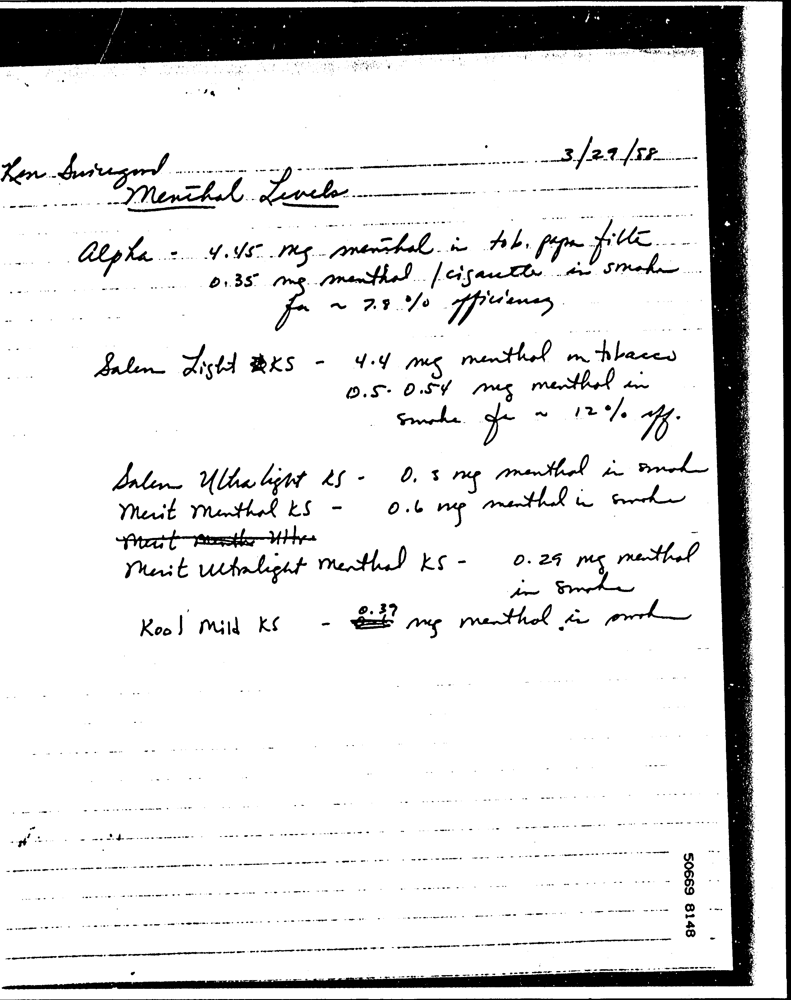 Ken Swicegood
3/29/88
Menthol Levels
Alpha - 4.45 mg menthol in tob. paper filter
0.35 mg menthol / cigarette in smoke
for ~ 7.8 % efficiency
Salem Light KS - 4.4 mg menthol on tobacco
0.5 - 0.54 mg menthol in
smoke for ~ 12 % eff.
Salem Ultra light KS - 0.3 mg menthol in smoke
Merit Menthol KS - 0.6 mg menthol in smoke
Merit Ultralight Menthol KS - 0.29 mg menthol
in smoke
Kool Mild KS - 0.39 mg menthol in smoke
50669 8148